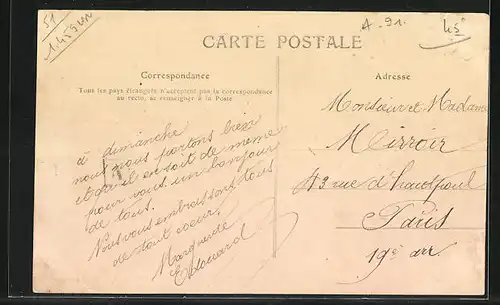 51
A-91.
45
CARTE POSTALE
Correspondance
Tous les pays étrangers n'acceptent pas la correspondance
au recto, se renseigner à la Poste
à dimanche
nous nous portons bien
et qu'il en soit de même
pour vous un bonjour
de tous.
Nous vous embrassons tous
de tout coeur.
Marguerite
Edouard
Adresse
Monsieur et Madame
Mirroir
43 rue d'Hautpoul
Paris
19e arr